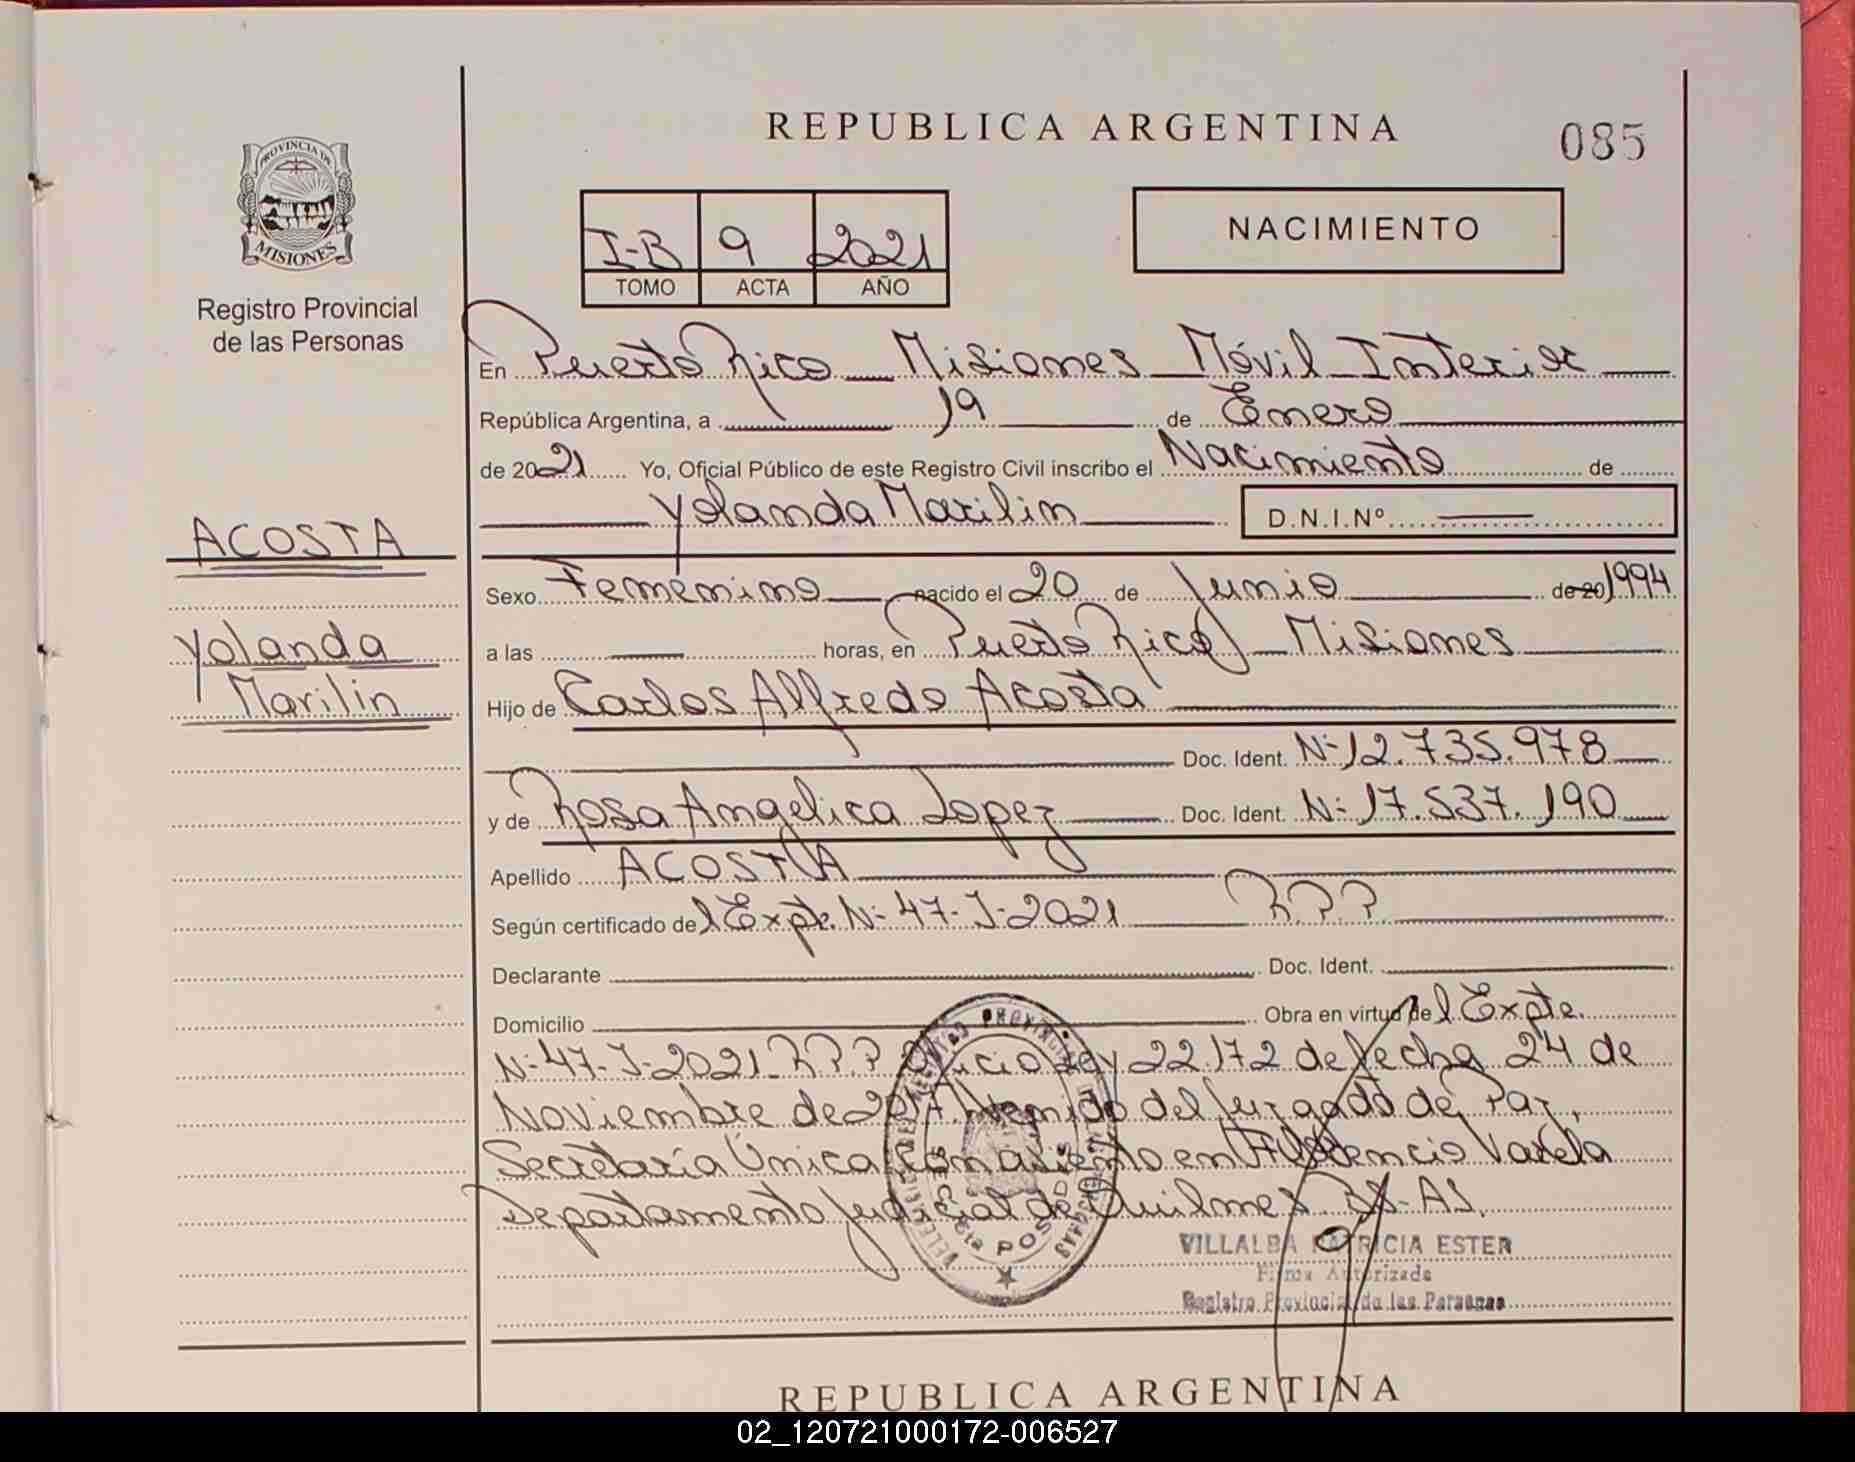 REPUBLICA ARGENTINA
085
PROVINCIA DE
MISIONES
Registro Provincial
de las Personas
I-B 9 2021
TOMO ACTA AÑO
NACIMIENTO
En Puerto Rico Misiones Móvil Interior
República Argentina, a 19 de Enero
de 2021 Yo, Oficial Público de este Registro Civil inscribo el Nacimiento de
Yolanda Marilin D.N.I.Nº
ACOSTA
Yolanda
Marilin
Sexo Femenino nacido el 20 de Junio de 20 1994
a las horas, en Puerto Rico Misiones
Hijo de Carlos Alfredo Acosta
Doc. Ident. Nº 12.735.978
y de Rosa Angelica Lopez Doc. Ident. Nº 17.537.190
Apellido ACOSTA
Según certificado del Expte. Nº 47-J-2021 R.P.P.
Declarante Doc. Ident.
Domicilio Obra en virtud del Expte.
Nº 47-J-2021 R.P.P. Oficio Ley 22.172 de fecha 24 de
Noviembre de del Juzgado de Paz,
Secretaría Única con asiento en Florencio Varela
Departamento Judicial de Quilmes BS-AS.
VILLALBA PATRICIA ESTER
Firma Autorizada
Registro Provincial de las Personas
REPUBLICA ARGENTINA
02_120721000172-006527